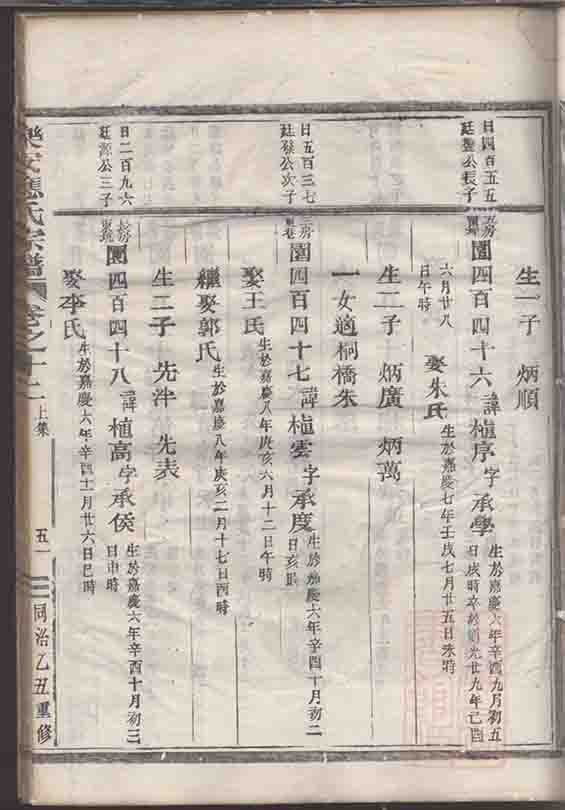 生一子　炳順
日四百五五
廷聖公長子
三房
圓四百四十六 諱植序 字承學
生於嘉慶六年辛酉九月初五
日戌時卒於道光廿九年己酉
六月廿八
日午時
娶朱氏 生於嘉慶七年壬戌七月廿五日未時
生二子　炳廣　炳萬
一女適桐橋朱
日五百三七
廷發公次子
三房
圓四百四十七 諱植雲 字承度
生於嘉慶六年辛酉十月初二
日亥時
娶王氏 生於嘉慶八年癸亥六月十二日午時
繼娶郭氏 生於嘉慶八年癸亥二月十七日酉時
生二子　先沖　先表
日二百九六
廷源公三子
長房
圓四百四十八 諱植高 字承侯
生於嘉慶六年辛酉十月初三
日申時
娶李氏 生於嘉慶六年辛酉十一月廿六日巳時
樂安蔣氏宗譜 卷之十二 上集 五一 同治乙丑重修